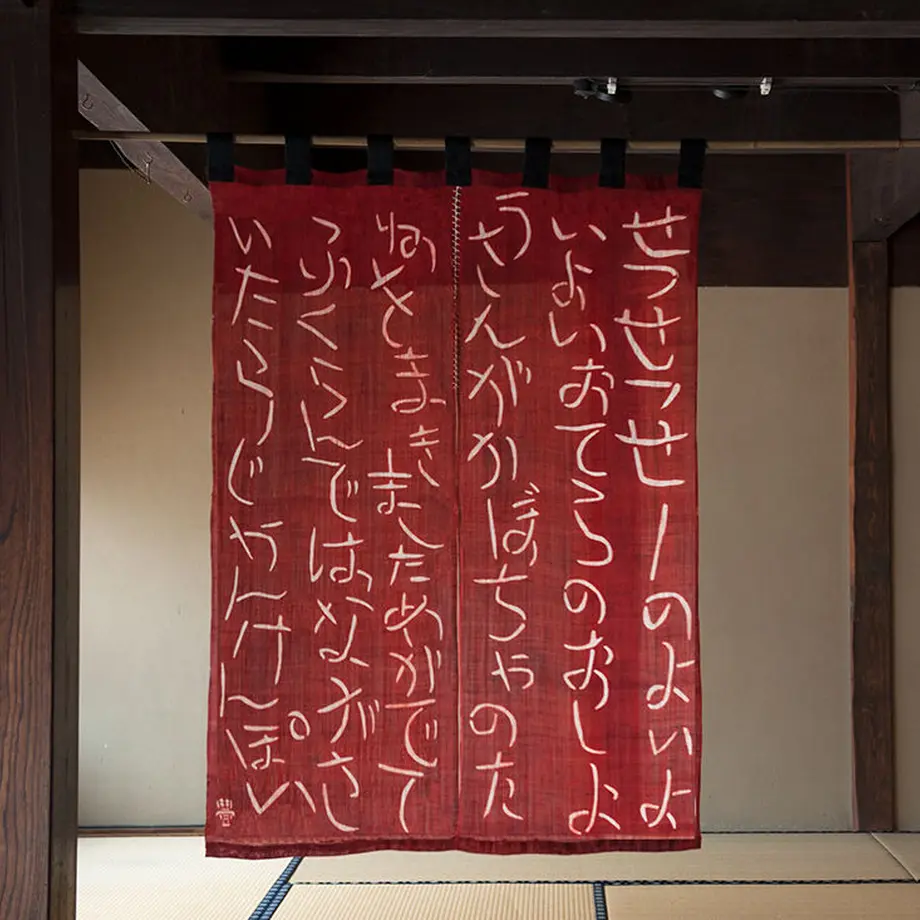 せっせっせーのよいよ
いよいおてらのおしよ
うさんがかぼちゃのた
ねをまきましためがでて
つぼくらんではながさ
いたらじゃんけんぽい